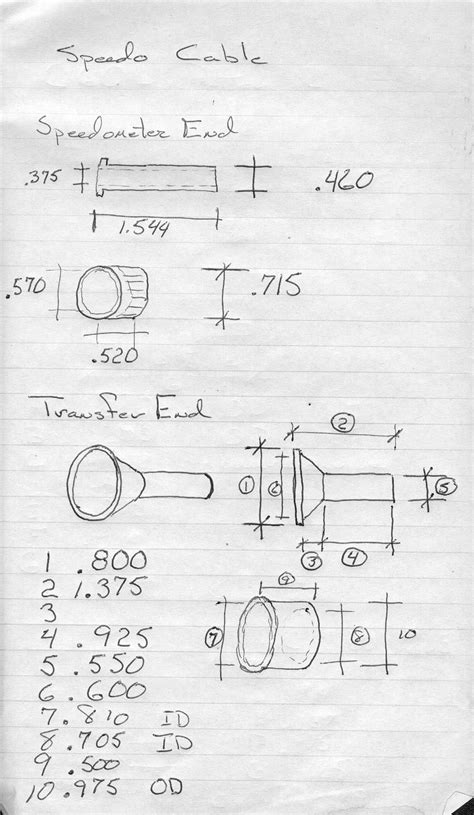 Speedo Cable
Speedometer End
.375 .460
1.544
.570 .715
.520
Transfer End
②
① ⑥ ⑤
③ ④
⑨
⑦ ⑧ 10
1 .800
2 1.375
3
4 .925
5 .550
6 .600
7 .810 ID
8 .705 ID
9 .500
10 .975 OD